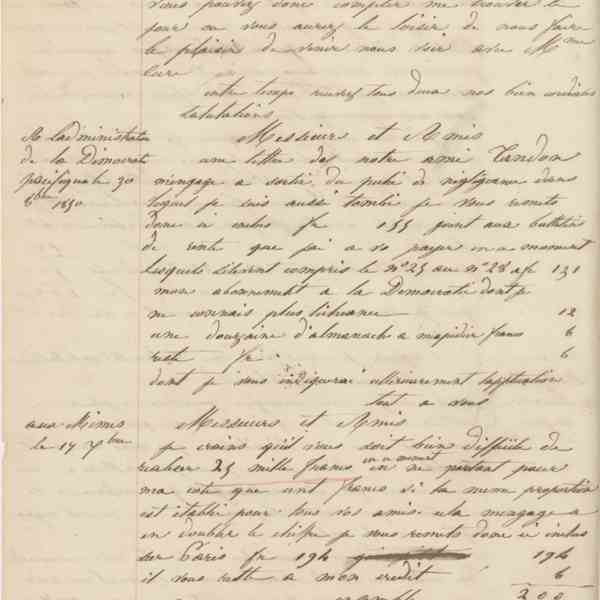 vous pouvez donc compter me trouver le
jour ou vous aurez le loisir de nous faire
le plaisir de venir nous voir avec Mme
entre temps recevez tous deux nos bien cordiales
salutations
A Ladministrateur
de la Démocratie
pacifique le 30
8bre 1850
Messieurs et Amis
une lettre de notre ami Tandon
m'engage a sortir du puits de négligeance dans
lequel je suis aussi tombé je vous remets
donc ci inclus fr 155 joint aux bulletins
de rente que j'ai a vo payer en a moment
lesquels s'élèvent compris le no 25 au no 28 a fr 131
mon abonnement a la Democratie dont je
ne connais plus l'échéance 12
une douzaine d'almanach a mejidier francs 6
reste fr 6
dont je vous indiquerai ultérieurement l'application
tout a vous
aux Mêmes
le 17 Xbre
Messieurs et Amis
je crains qu'il vous soit bien difficile de
réaliser 25 mille francs en a moment en ne portant pour
ma cote que cent francs si la meme proportion
est établie pour tous vos amis cela m'engage a
en doubler le chiffre je vous remets donc ci inclus
sur Paris fr 194 194
il vous reste a mon credit 6
ensemble 200